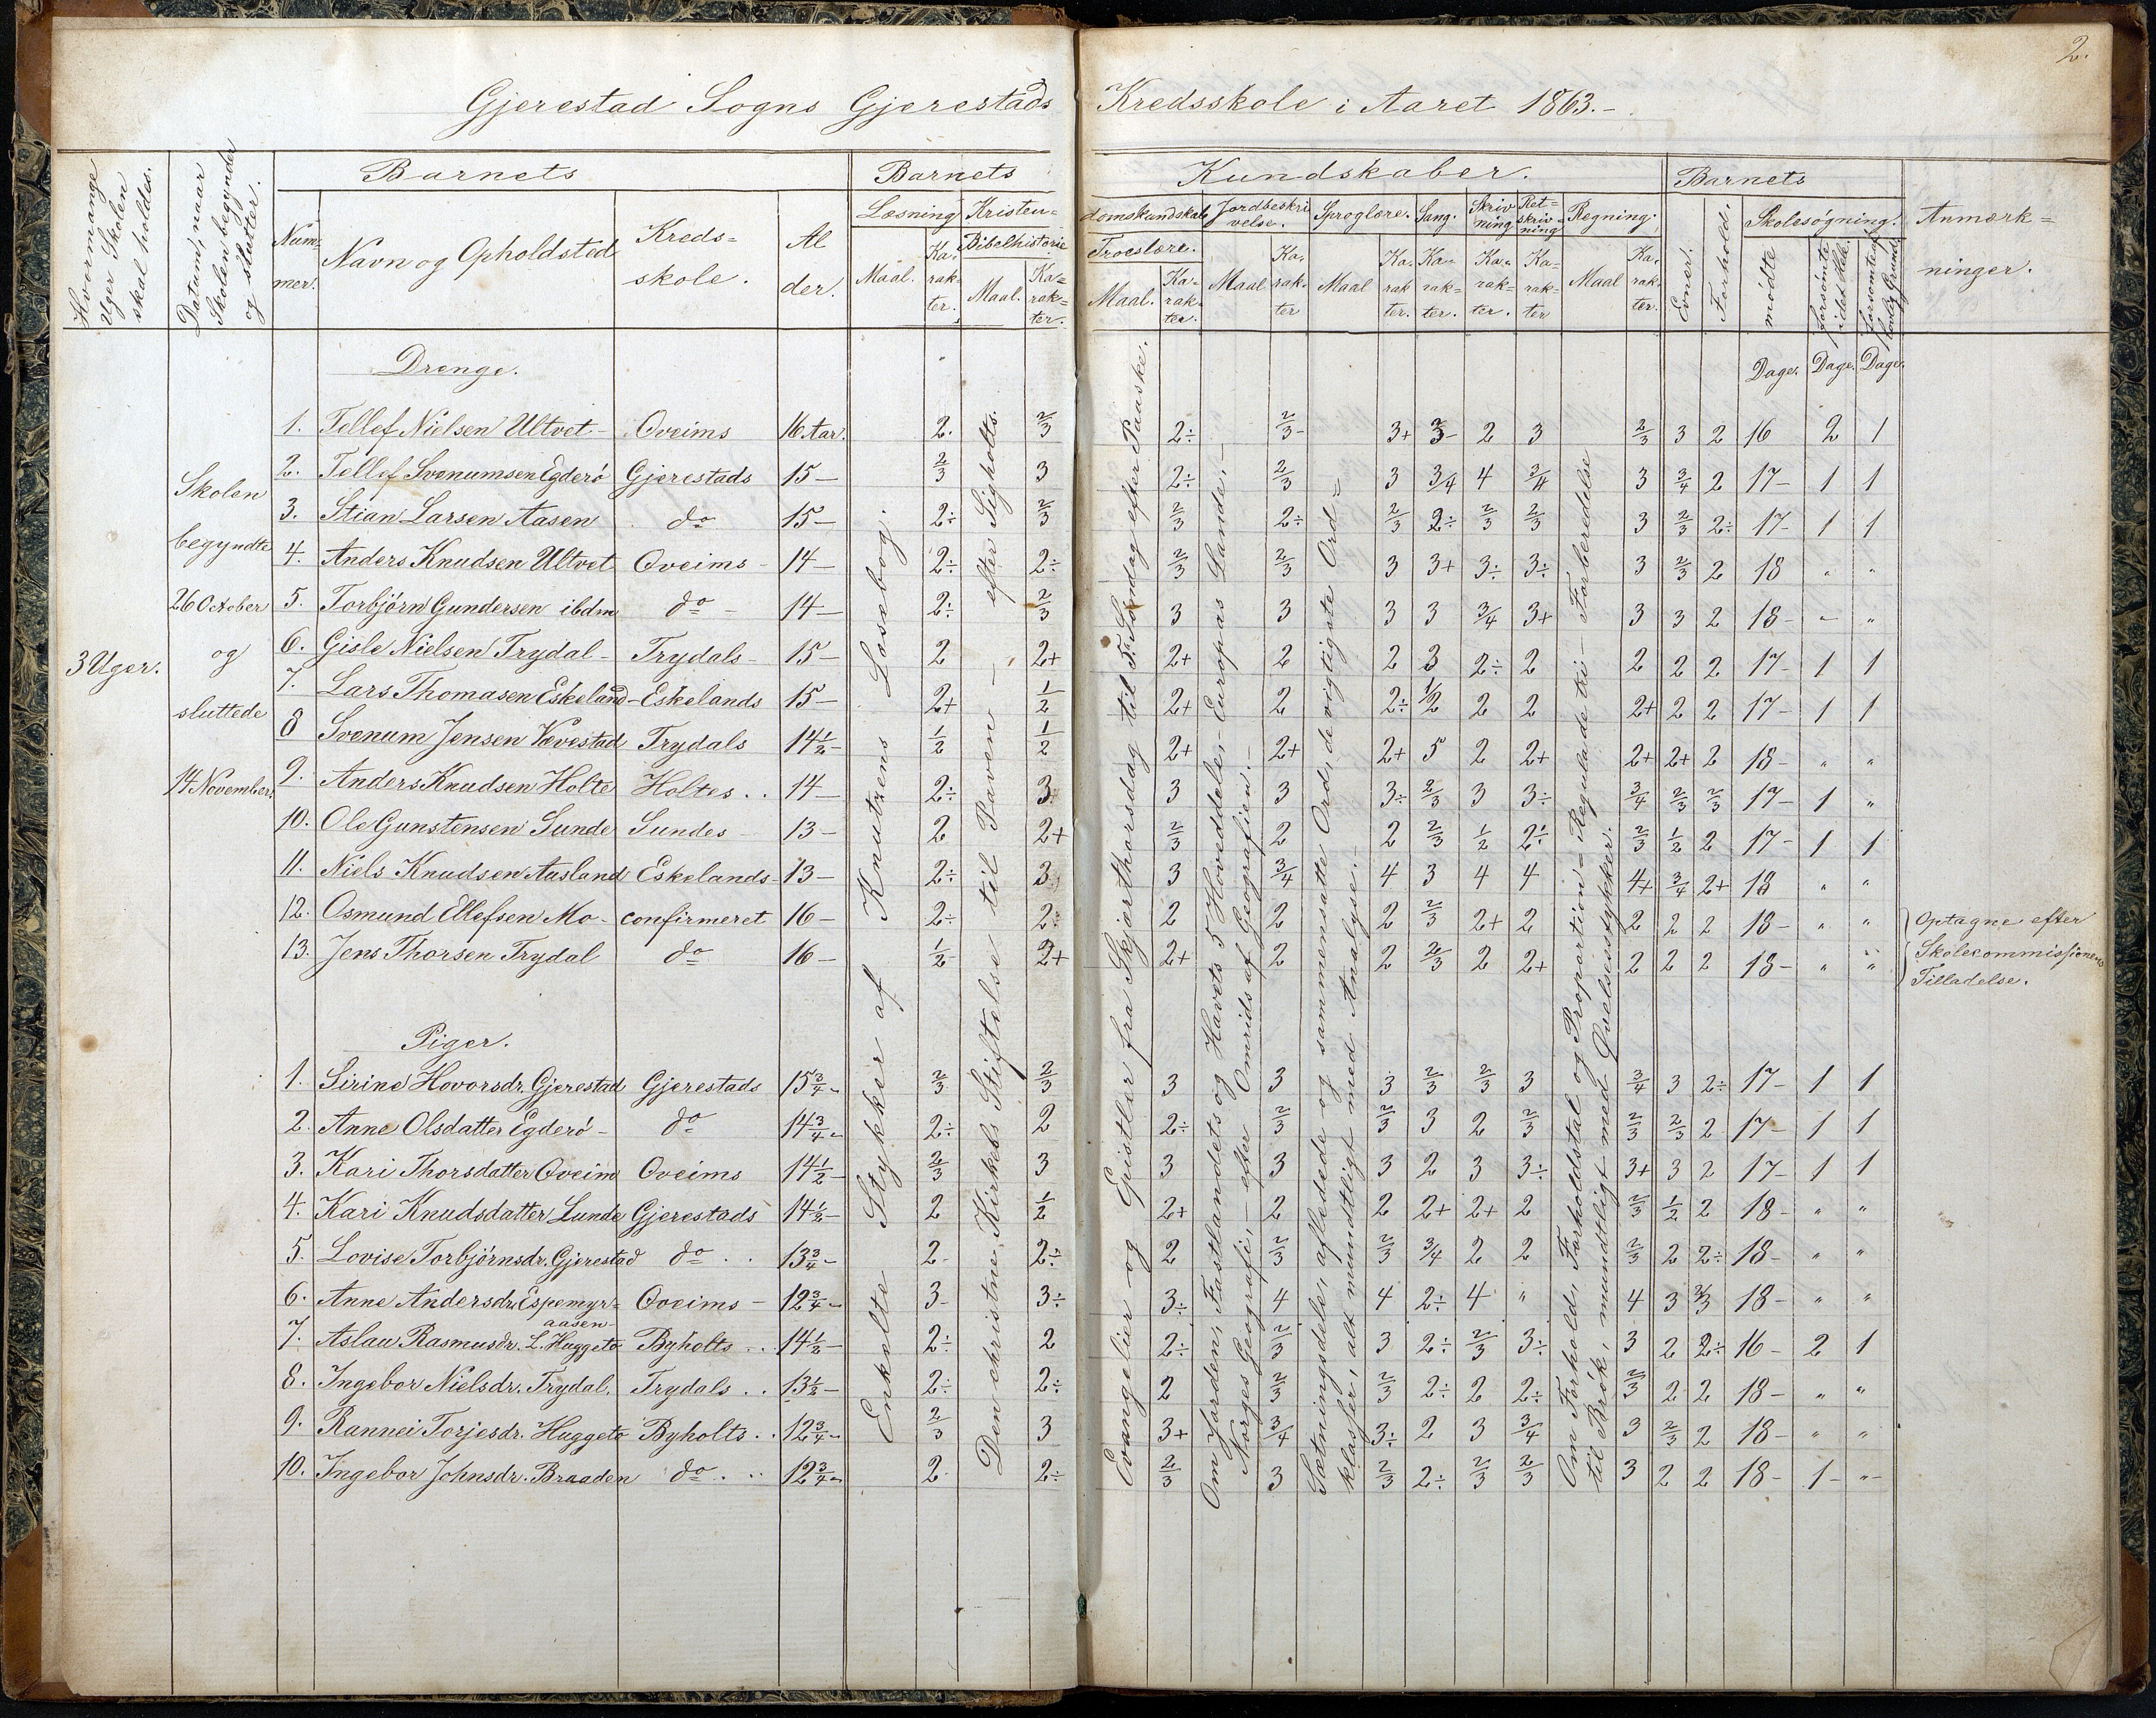 2.
Gjerestad Sogns Gjerestads Kredsskole i Aaret 1863.-
Hvormange Uger Skolen skal holdes.
Datum, naar Skolen begynder og slutter.
Barnets
Num=mer.
Navn og Opholdsted
Kreds=skole.
Al der.
Barnets Kundskaber.
Læsning
Maal. Ka-rak-ter.
Kristen=domskundskab
Bibelhistorie
Maal. Ka=rak=ter.
Troeslære.
Maal. Ka-rak-ter.
Jordbeskrivelse.
Maal Ka-rak-ter
Sproglære.
Maal Ka-rak ter.
Sang.
Ka-rak=ter.
Skrivning
Ka-rak=ter.
Ret=skriv=ning
Ka-rak-ter
Regning.
Maal Ka-rak-ter.
Barnets
Evner.
Forhold.
Skolesøgning.
mødte
forsømte idet Hele.
forsømte af lovlig Grund.
Anmærk=ninger.
Drenge.
Dage. Dage. Dage.
1. Tellef Nielsen Ultvet- Oveims 16 Aar. 2. 2/3 2÷ 2/3- 3+ 3- 2 3 2/3 3 2 16 2 1
2. Tellef Svenumsen Egderö Gjerestads 15- 2/3 3 2÷ 2/3 3 3/4 4 3/4 3 3/4 2 17- 1 1
3. Stian Larsen Aasen do 15- 2÷ 2/3 2/3 2÷ 2/3 2÷ 2/3 2/3 3 2/3 2÷ 17- 1 1
4. Anders Knudsen Ultvet Oveims- 14- 2÷ 2÷ 2/3 2/3 3 3+ 3÷ 3÷ 3 2/3 2 18 " "
5. Torbjörn Gundersen ibdm do- 14- 2÷ 2/3 3 3 3 3 3/4 3+ 3 3 2 18- " "
6. Gisle Nielsen Trydal- Trydals- 15- 2 2+ 2+ 2 2 3 2÷ 2 2 2 2 17- 1 1
7. Lars Thomasen Eskeland- Eskelands 15- 2+ 1/2 2+ 2 2÷ 1/2 2 2 2+ 2 2 17- 1 1
8 Svenum Jensen Vævestad Trydals 14 1/2- 1/2 1/2 2+ 2+ 2+ 5 2 2+ 2+ 2+ 2 18- " "
9. Anders Knudsen Holte Holtes.. 14- 2÷ 3 3 3 3÷ 2/3 3 3÷ 3/4 2/3 2/3 17- 1 "
10. Ole Gunstensen Sunde Sundes 13- 2 2+ 2/3 2 2 2/3 1/2 2÷ 2/3 1/2 2 17- 1 1
11. Niels Knudsen Aasland Eskelands- 13- 2÷ 3 3 3/4 4 3 4 4 4+ 3/4 2+ 18 " "
12. Osmund Ellefsen Mo- confirmeret 16- 2÷ 2÷ 2 2 2 2/3 2+ 2 2 2 2 18- " "
13. Jens Thorsen Trydal do 16- 1/2- 2+ 2+ 2 2 2/3 2 2+ 2 2 2 18- " "
Optagne efter
Skolecommissionens
Tilladelse.
Skolen
begyndte
26 October
og
sluttede
14 November.
3 Uger.
Piger.
1. Sirine Hovorsdr. Gjerestad Gjerestads 15 3/4- 2/3 2/3 3 3 3 2/3 2/3 3 3/4 3 2÷ 17- 1 1
2. Anne Olsdatter Egderö- do 14 3/4- 2÷ 2 2÷ 2/3 2/3 3 2 2/3 2/3 2/3 2 17- 1 1
3. Kari Thorsdatter Oveim Oveims 14 1/2- 2/3 3 3 3 3 2 3 3÷ 3+ 3 2 17- 1 1
4. Kari Knudsdatter Lunde Gjerestads 14 1/2- 2 1/2 2+ 2 2 2+ 2+ 2 2/3 1/2 2 18- " "
5. Lovise Torbjörnsdr. Gjerestad do.. 13 3/4- 2- 2÷ 2 2/3 2/3 3/4 2 2 2/3 2 2÷ 18- " "
6. Anne Andersdr. Espemyr=aasen- Oveims- 12 3/4- 3- 3÷ 3÷ 4 4 2÷ 4 " 4 3 2/3 18- " "
7. Aslau Rasmusdr. L. Huggeto Byholts.. 14 1/2- 2÷ 2 2÷ 2/3 3 2÷ 2/3 3÷ 3 2 2÷ 16- 2 1
8. Ingebor Nielsdr. Trydal. Trydals.. 13 1/2- 2÷ 2÷ 2 2/3 2/3 2÷ 2 2÷ 2/3 2 2 18- " "
9. Rannei Torjesdr. Huggeto Byholts.. 12 3/4- 2/3 3 3+ 3/4 3÷ 2 3 3/4 3 2/3 2 18- " "
10. Ingebor Johnsdr. Braaden do... 12 3/4- 2- 2÷ 2/3 3 2/3 2÷ 2/3 2/3 3 2 2 18- 1- "-
Enkelte Stykker af Knutzens Læsebog.
Den christne Kirkes Stiftelse til Paven - efter Sigholts.
Evangelier og Epistler fra Skjærthorsdag til 5te Søndag efter Paaske.
Om Jorden, Fastlandets og Havets 5 Hoveddele, - Europas Lande, -
Norges Geografi, - efter Omrids af Geografien.-
Sætningsdele, afledede og sammensatte Ord, de vigtigste Ord=
klasser, alt mundtligt med Analyse.-
Om Forhold, Forholdstal og Proportion - Regulade tri - Forberedelse
til Brök, mundtligt med Øvelsesstykker.